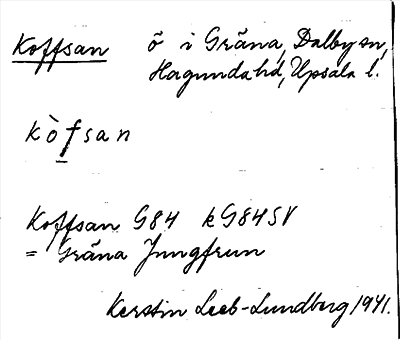 Koffsan ö i Gräna, Dalby sn,
Hagundahd, Upsala l.
kòfsan
Koffsan G84 kG84SV
= Gräna Jungfrun
Kerstin Leeb-Lundberg 1941.